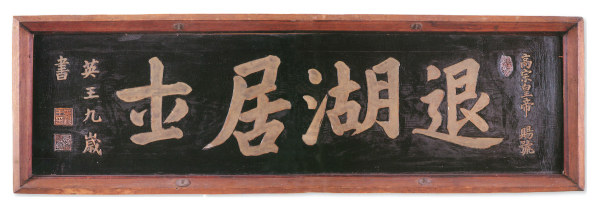 高宗皇帝 賜號
退湖居士
英王九歲
書